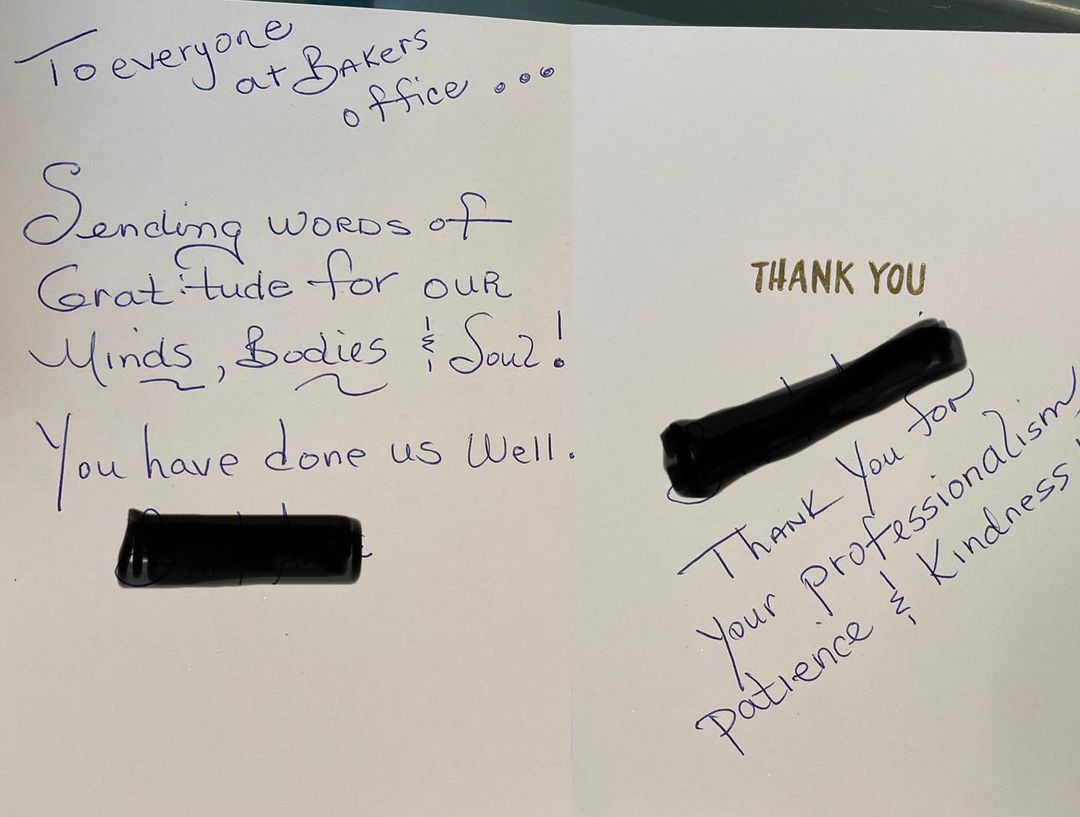 To everyone
at BAKERS
office ...
Sending WORDS of
Gratitude for OUR
Minds, Bodies & Soul!
You have done us Well.
THANK YOU
THANK You for
your professionalism
patience & Kindness!